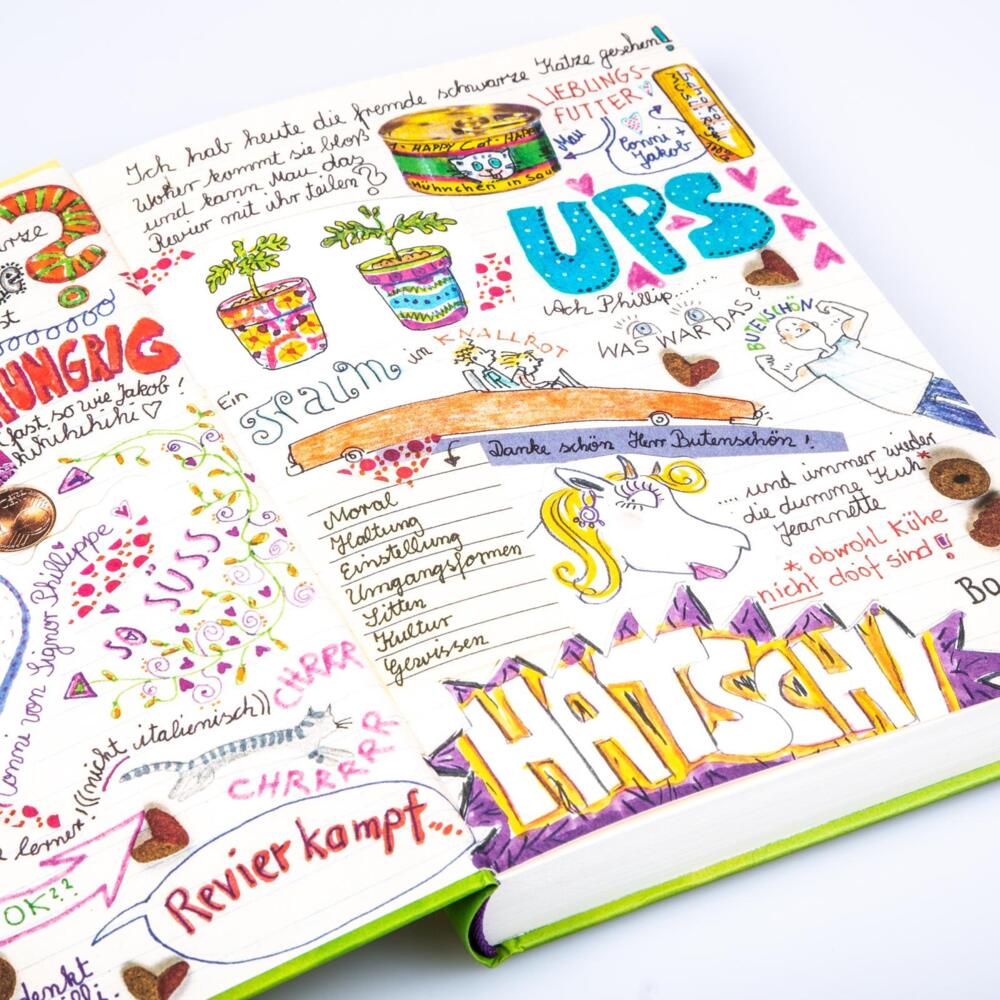 ?
ast
UNGRIG
fast so wie Jakob!
Hihihihi
von Signor Phillippe
SO SÜSS
((nicht italienisch))
CHRRR
CHRRRRR
OK??
Revierkampf....
denkt
Ich hab heute die fremde schwarze Katze gesehen!
Woher kommt sie bloß
und kann Mau das
Revier mit ihr teilen?
HAPPY Cat · HAPP
Hühnchen in Sau
LIEBLINGS-
FUTTER
Mau
Conni +
Jakob
UPS
Ach Phillip......
WAS WAR DAS?
BUTENSCHÖN
Ein Traum in KNALLROT
Danke schön Herr Butenschön!
Moral
Haltung
Einstellung
Umgangsformen
Sitten
Kultur
Gewissen
.... und immer wieder
die dumme Kuh*
Jeannette
* obwohl Kühe
nicht doof sind!
Bo
HATSCHI